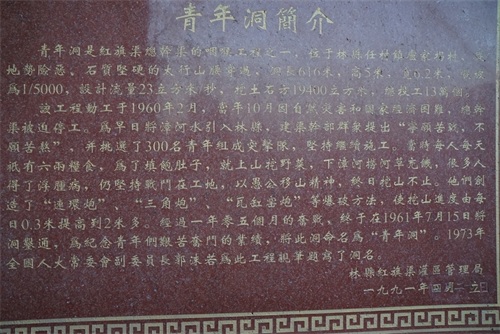 青年洞簡介
青年洞是紅旗渠總幹渠的咽喉工程之一，位于林縣任村鎮盧家拐村，
地勢險惡、石質堅硬的太行山腰。洞長616米，高5米，寬6.2米，
爲1/5000，設計流量23立方米/秒，挖土石方19400立方米，總投工13萬個。
該工程動工于1960年2月，當年10月因自然災害和國家經濟困難，總幹
渠被迫停工。爲早日將漳河水引入林縣，建渠幹部群衆提出“寧願苦戰，不
願苦熬”，并挑選了300名青年組成突擊隊，堅持繼續施工。當時每人每天
祇有六兩糧食，爲了填飽肚子，就上山挖野菜，下漳河撈河草充饑，很多人
得了浮腫病，仍堅持戰鬥在工地，以愚公移山精神，終日挖山不止。他們創
造了“連環炮”、“三角炮”、“瓦缸窑炮”等爆破方法，使挖山進度由每
日0.3米提高到2米多。經過一年零五個月的奮戰，終于在1961年7月15日將
洞鑿通，爲紀念青年們艱苦奮鬥的業績，將此洞命名爲“青年洞”。1973年
全國人大常委會副委員長郭沫若爲此工程親筆題寫了洞名。
林縣紅旗渠灌區管理局
一九九一年